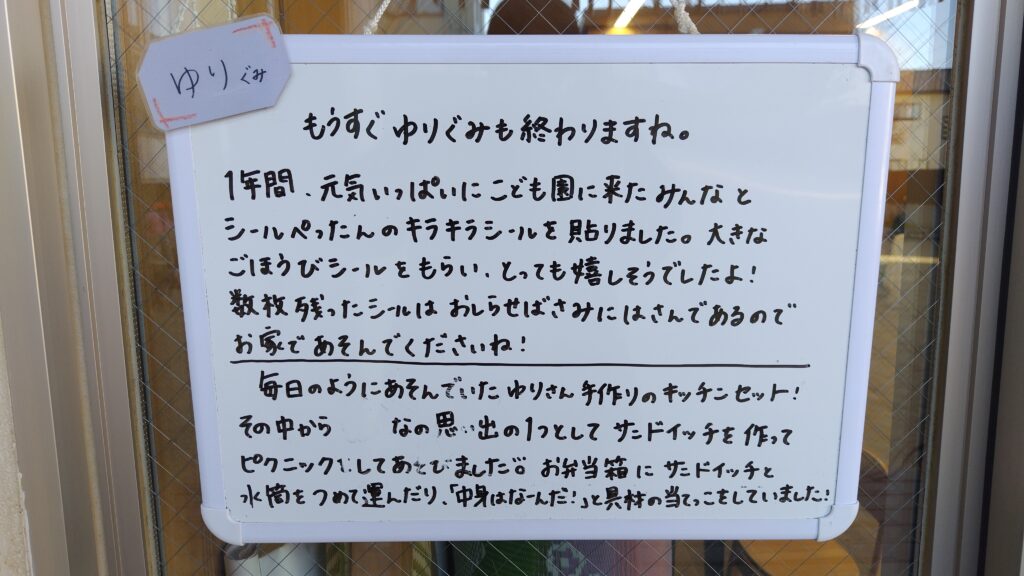 ゆりぐみ
もうすぐゆりぐみも終わりますね。
1年間、元気いっぱいにこども園に来たみんなと
シールぺったんのキラキラシールを貼りました。大きな
ごほうびシールをもらい、とっても嬉しそうでしたよ!
数枚残ったシールはおしらせばさみにはさんであるので
お家であそんでくださいね!
毎日のようにあそんでいたゆりさん手作りのキッチンセット!
その中から なの思い出の1つとしてサンドイッチを作って
ピクニック してあそびました。お弁当箱にサンドイッチと
水筒をつめて運んだり、「中身はなーんだ!」と具材の当てっこをしていました!